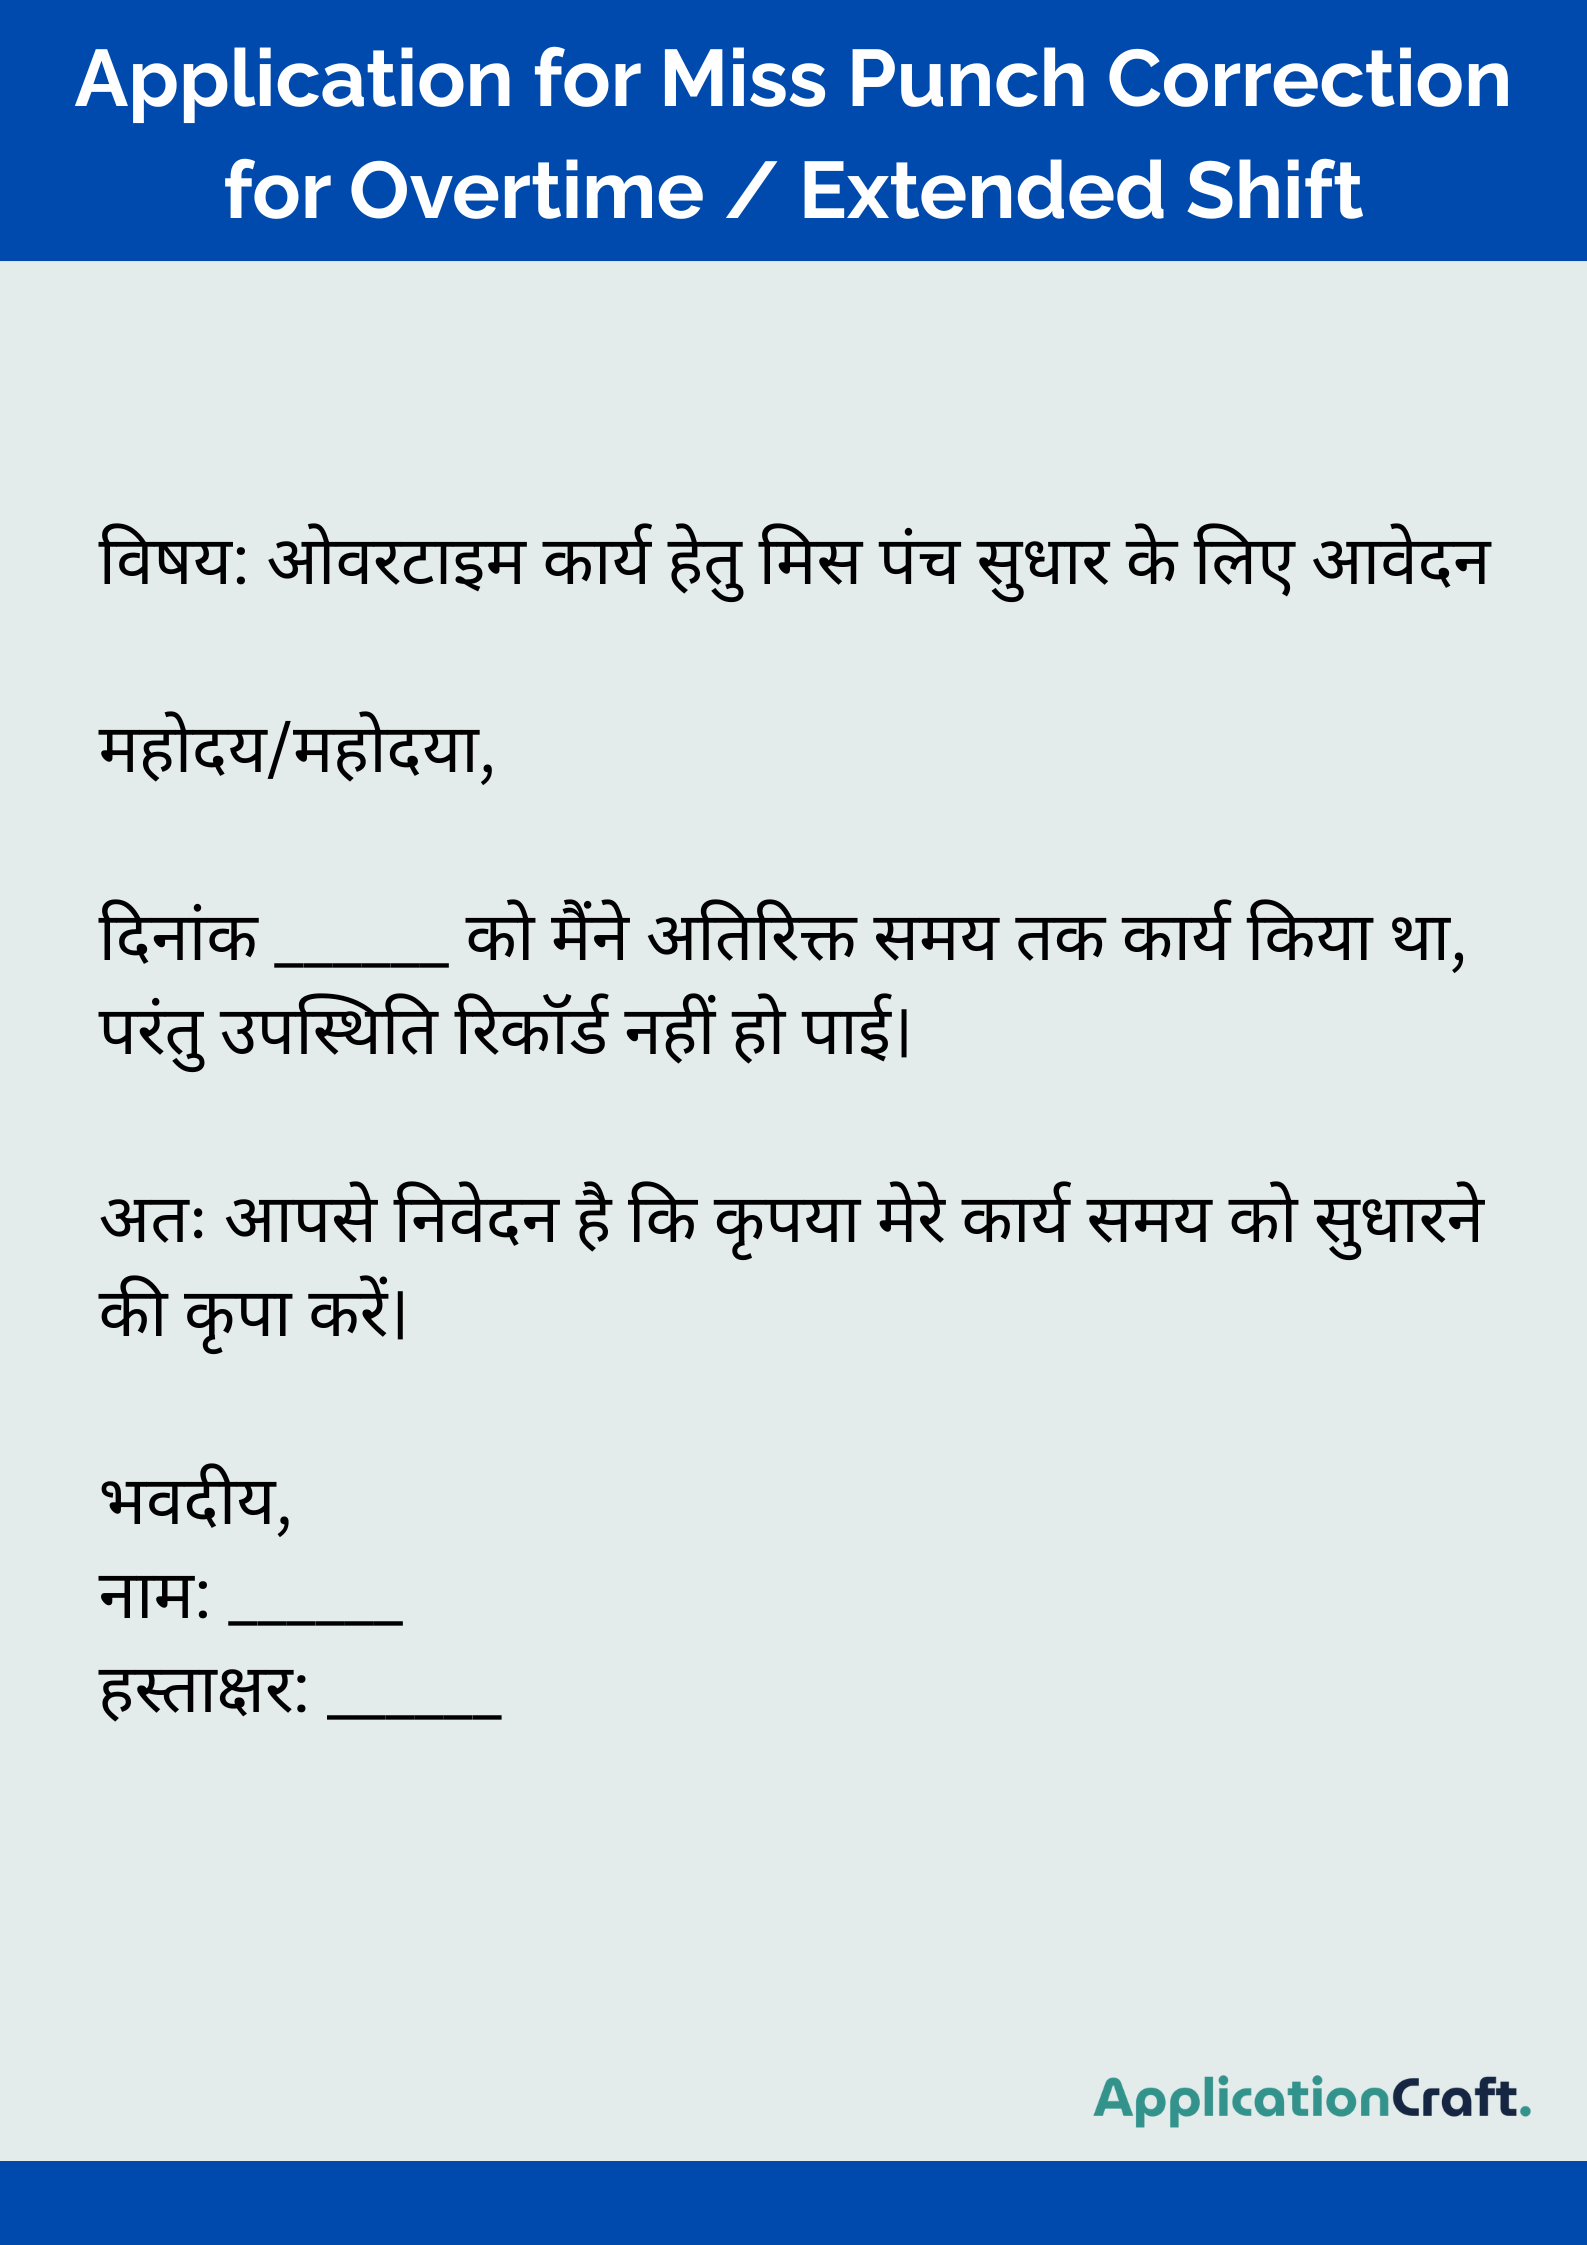 Application for Miss Punch Correction
for Overtime / Extended Shift
विषय: ओवरटाइम कार्य हेतु मिस पंच सुधार के लिए आवेदन
महोदय/महोदया,
दिनांक ______ को मैंने अतिरिक्त समय तक कार्य किया था,
परंतु उपस्थिति रिकॉर्ड नहीं हो पाई।
अतः आपसे निवेदन है कि कृपया मेरे कार्य समय को सुधारने
की कृपा करें।
भवदीय,
नाम: ______
हस्ताक्षर: ______
ApplicationCraft.